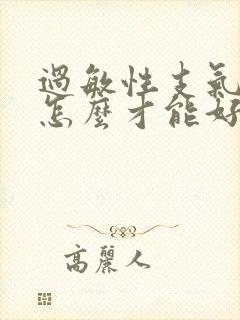 過敏性支氣
怎麼才能好
高麗人